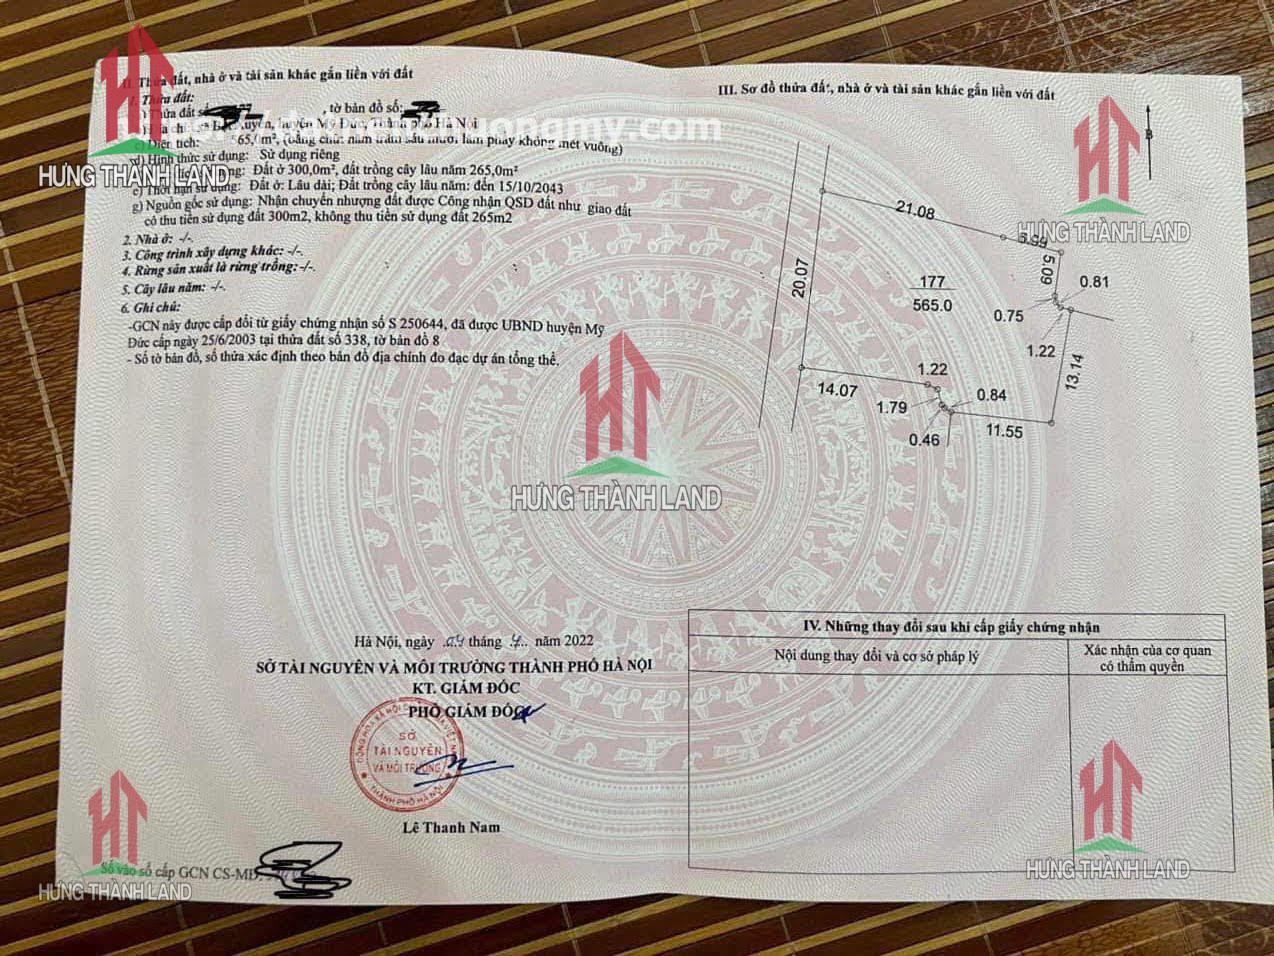 II. Thửa đất, nhà ở và tài sản khác gắn liền với đất
1. Thửa đất:
Thửa đất số , tờ bản đồ số:
huyện Mỹ Đức, Thành phố Hà Nội
c) Diện tích: 565,0 m², (bằng chữ: năm trăm sáu mươi lăm phẩy không mét vuông)
d) Hình thức sử dụng: Sử dụng riêng
Đất ở 300,0m², đất trồng cây lâu năm 265,0m²
e) Thời hạn sử dụng: Đất ở: Lâu dài; Đất trồng cây lâu năm: đến 15/10/2043
g) Nguồn gốc sử dụng: Nhận chuyển nhượng đất được Công nhận QSD đất như giao đất
có thu tiền sử dụng đất 300m2, không thu tiền sử dụng đất 265m2
2. Nhà ở: -/-.
3. Công trình xây dựng khác: -/-.
4. Rừng sản xuất là rừng trồng: -/-.
5. Cây lâu năm: -/-.
6. Ghi chú:
-GCN này được cấp đổi từ giấy chứng nhận số S 250644, đã được UBND huyện Mỹ
Đức cấp ngày 25/6/2003 tại thửa đất số 338, tờ bản đồ 8
- Số tờ bản đồ, số thửa xác định theo bản đồ địa chính đo đạc dự án tổng thể.
Hà Nội, ngày 04 tháng 7 năm 2022
SỞ TÀI NGUYÊN VÀ MÔI TRƯỜNG THÀNH PHỐ HÀ NỘI
KT. GIÁM ĐỐC
PHÓ GIÁM ĐỐC
SỞ
TÀI NGUYÊN
VÀ MÔI TRƯỜNG
THÀNH PHỐ HÀ NỘI
Lê Thanh Nam
Số vào sổ cấp GCN CS-MĐ:
III. Sơ đồ thửa đất, nhà ở và tài sản khác gắn liền với đất
B
21.08
6.99
5.09
0.81
20.07
177
565.0
0.75
1.22
13.14
1.22
14.07
1.79
0.84
0.46
11.55
IV. Những thay đổi sau khi cấp giấy chứng nhận
Nội dung thay đổi và cơ sở pháp lý
Xác nhận của cơ quan
có thẩm quyền
HƯNG THÀNH LAND
HƯNG THÀNH LAND
HƯNG THÀNH LAND
HƯNG THÀNH LAND
HƯNG THÀNH LAND